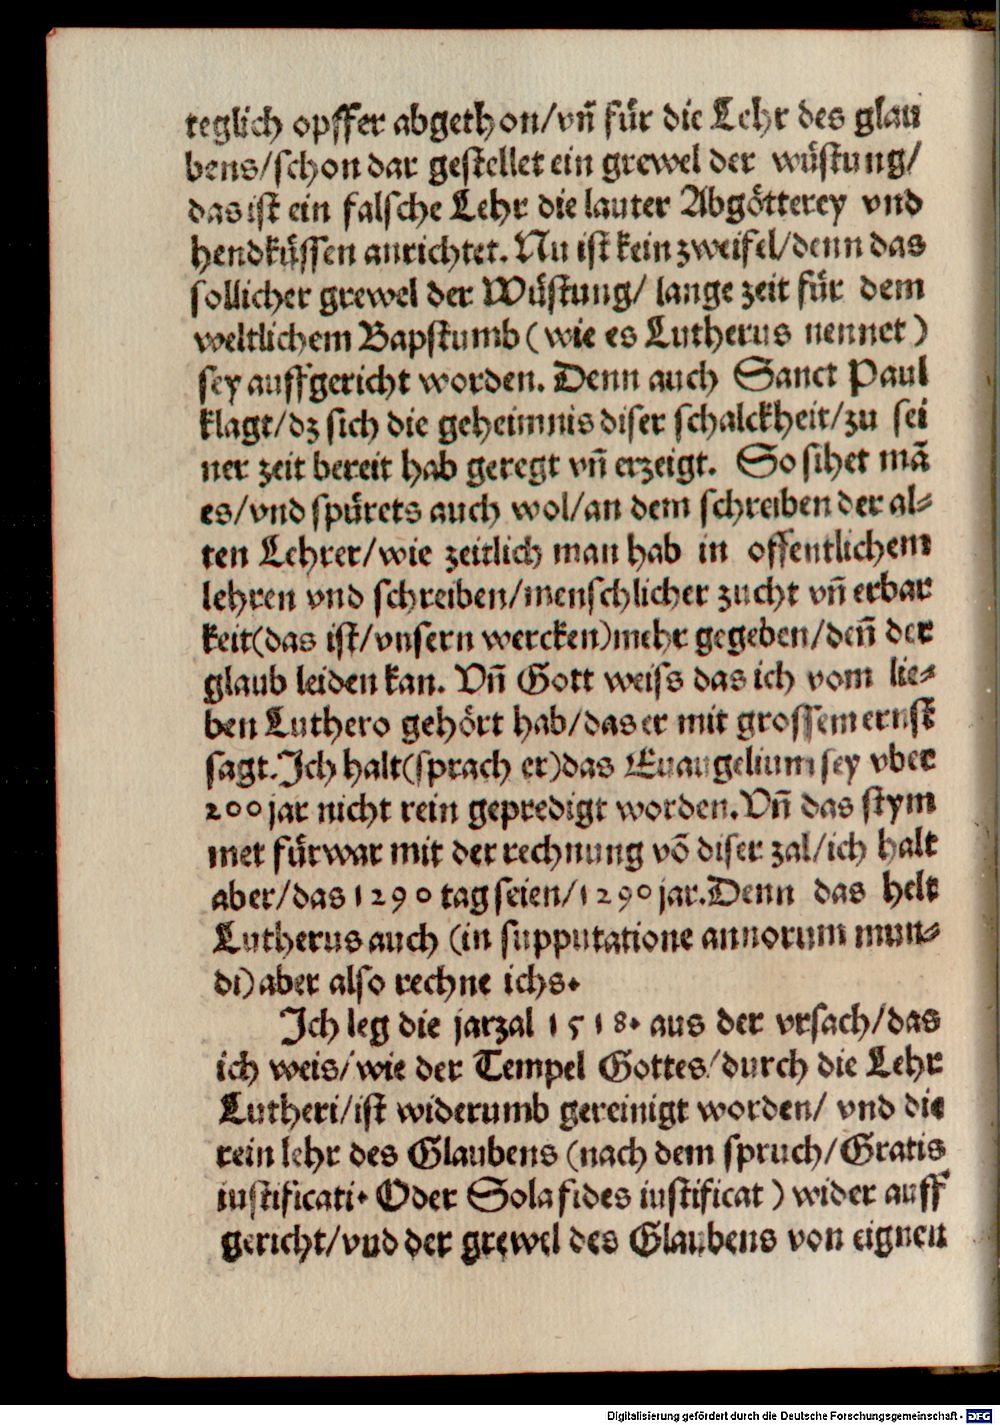 teglich opffer abgethon/vñ fuͤr die Lehr des glau
bens/schon dar gestellet ein grewel der wuͤstung/
das ist ein falsche Lehr die lauter Abgoͤtterey vnd
hendkuͤssen anrichtet. Nu ist kein zweifel/denn das
sollicher grewel der Wuͤstung/ lange zeit fuͤr dem
weltlichem Bapstumb (wie es Lutherus nennet)
sey auffgericht worden. Denn auch Sanct Paul
klagt/dz sich die geheimnis diser schalckheit/zu sei
ner zeit bereit hab geregt vñ erzeigt. So sihet mã
es/vnd spuͤrets auch wol/an dem schreiben der al⸗
ten Lehrer/wie zeitlich man hab in offentlichem
lehren vnd schreiben/menschlicher zucht vñ erbar
keit(das ist/vnsern wercken)mehr gegeben/deñ der
glaub leiden kan. Vñ Gott weiss das ich vom lie⸗
ben Luthero gehoͤrt hab/das er mit grossem ernst
sagt. Ich halt(sprach er)das Euangelium sey vber
200 jar nicht rein gepredigt worden. Vñ das stym
met fuͤrwar mit der rechnung võ diser zal/ich halt
aber/das 1290 tag seien/1290 jar. Denn das helt
Lutherus auch (in supputatione annorum mun⸗
di) aber also rechne ichs.
Ich leg die jarzal 1518. aus der vrsach/das
ich weis/wie der Tempel Gottes/durch die Lehr
Lutheri/ist widerumb gereinigt worden/ vnd die
rein lehr des Glaubens (nach dem spruch/Gratis
iustificati. Oder Sola fides iustificat) wider auff
gericht/vnd der grewel des Glaubens von eignen
Digitalisierung gefördert durch die Deutsche Forschungsgemeinschaft - DFG